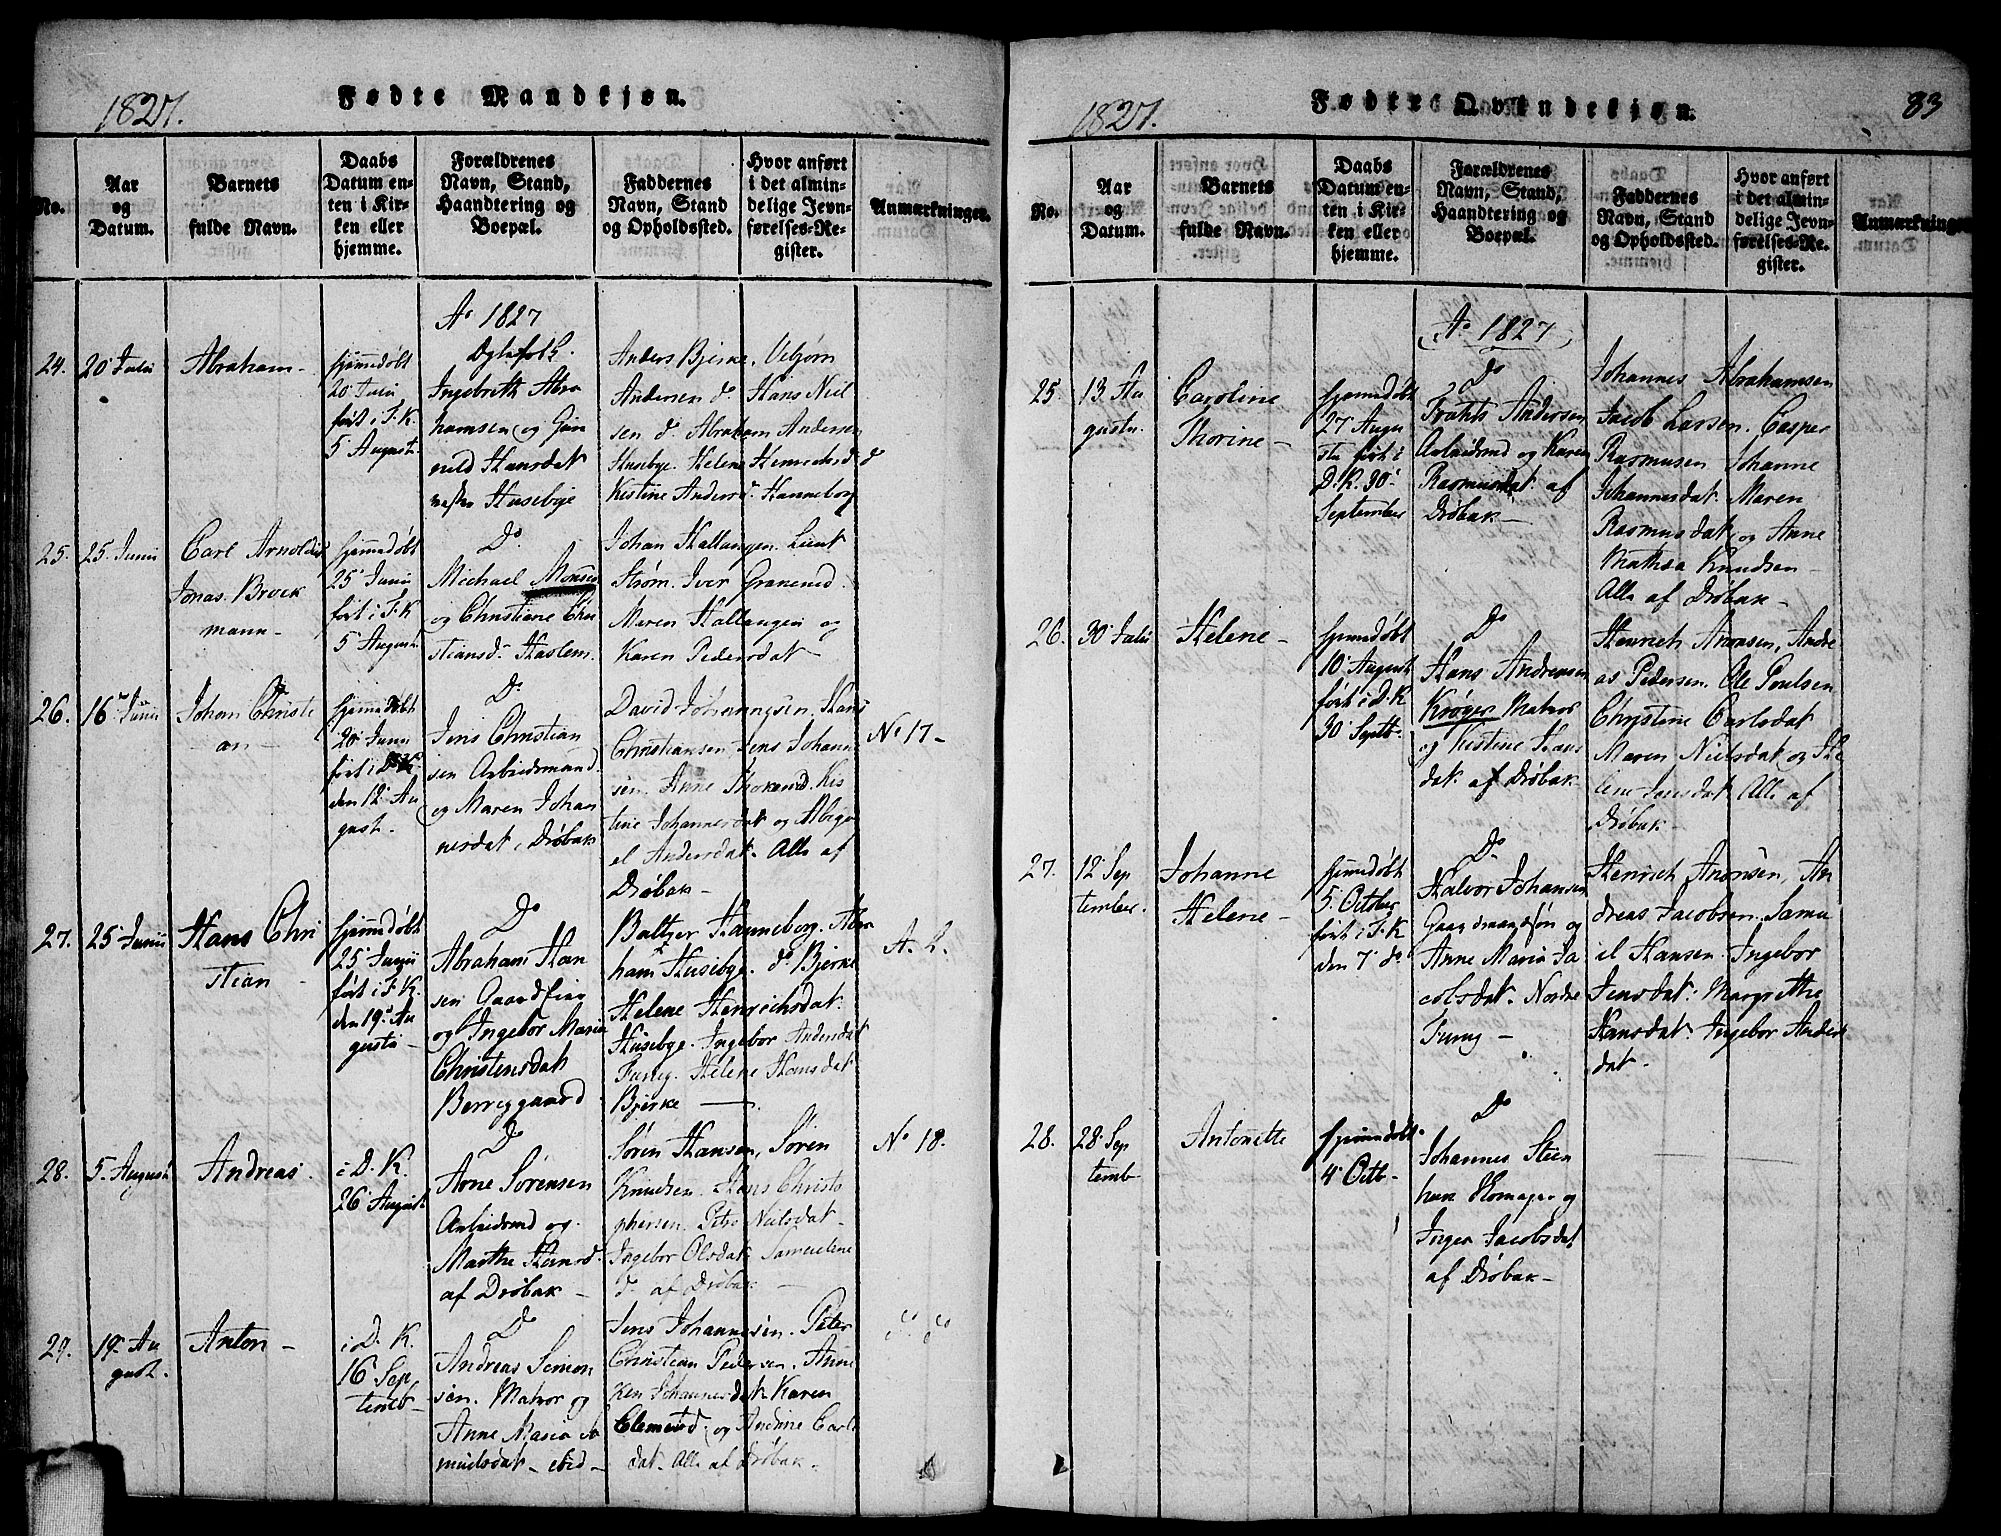 1827.
Fødte Mandkjøn.
No.
Aar
og
Datum.
Barnets
fulde Navn.
Daabs
Datum en-
ten i Kir-
ken eller
hjemme.
Forældrenes
Navn, Stand,
Haandtering og
Boepæl.
Faddernes
Navn, Stand
og Opholdssted.
Hvor anført
i det almin-
delige Jevn-
førelses-Re-
gister.
Anmærkninger.
24.
20 Julii
Abraham
hjemmedøbt
20 Junii
ført i F. K.
5 August.
Ao 1827
Ægtefolk.
Ingebreth Abra
hamsen og Gun
nild Hansdat
Husebye
Anders Bjerke, Vebjørn
Andersen do. Hans Niel
sen do. Abraham Andersen
Husebye. Helene Henrichsd do
Kistine Andersd. Hanneborg
25.
25 Junii
Carl Arnoldus
Jonas Brock
mann
hjemmedøbt
25 Junii
ført i F. K
5 August.
Do
Michael Monsen
og Christiane Chri
stiansd. Haslem.
Johan Hallangen. Lieut
Strøm. Iver Graneund.
Maren Hallangen og
Karen Pedersdat
26.
16 Junii
Johan Christi
an
hjemmedøbt
20 Junii
ført i D. K
den 12 Au
gust.
Do
Jens Christian
sen Arbeidsmand
og Maren Johan
nesdat, Drøbak
David Johannesen. Hans
Christiansen Jens Johann
sen. Anne Kis
tine Johannesdat og Abiga
el Andersdat. Alle af
Drøbak
No 17
27.
25 Junii
Hans Chri
stian
hjemmedøbt
25 Junii
ført i F. K.
den 19 Au
gusti
Do
Abraham Han
sen Gaardf
og Ingebor Maria
Christensdat
Berreggaard
Baltzer Hanneborg. Abra
ham Husebye. do Bjerke
Helene Henrichsdat.
Husebye. Ingebor Andersdat
Furuy. Helene Hansdat
Bjerke
28.
5. August
Andreas.
i D. K.
26 August
Do
Arne Sørensen
Arbeidsmd og
Marthe Hansd.
af Drøbak
Søren Hansen, Søren
Knudsen. Hans Christo
phersen. Petro Nielsdat
Ingebor Olsdat. Samuelene
do af Drøbak
No 18.
29.
19 Au
gust.
Anton
i D. K.
16 Sep
temb
Do
Andreas Simon
sen. Matros og
Anne Maria Sa
muelsdat ibid
Jens Johannesen. Peter
Christian Pedersen. Anne
Ken Johannesdat Karen
Clemensd. og Andrine Carls
dat. Alle af Drøbak.
1827.
Fødte Qvindekjøn.
83
No.
Aar
og
Datum.
Barnets
fulde Navn.
Daabs
Datum en-
ten i Kir-
ken eller
hjemme.
Forældrenes
Navn, Stand,
Haandtering og
Boepæl.
Faddernes
Navn, Stand
og Opholdssted.
Hvor anført
i det almin-
delige Jevn-
førelses-Re-
gister.
Anmærkninger
25
13 Au
gustii
Caroline
Thorine
hjemmedøbt
27 Augu
sti ført i
D. K. 30
September
Ao 1827
Do
Andersen
Arbeidsmd og Karen
Rasmusdat af
Drøbak
Johannes Abrahamsen
Jacob Larsen. Casper
Rasmusen Johanne
Johannesdat Maren
Rasmusdat og Anne
Mathea Knudsen
Alle af Drøbak
26.
30 Julii
Helene
hjemmedøbt
10 August
ført i D. K
30 Septb.
Do
Hans Andreasen
Krøger Matros
og Kistine Hans
dat af Drøbak
Henrich Aronsen, Andre
as Pedersen. Ole Poulsen
Christine Carlsdat
Maren Nielsdat og He
lene Jansdat. Alle af
Drøbak
27.
12 Sep
tember.
Johanne
Helene
hjemmedøbt
5 October
ført i F. K
den 7 do
Do
Halvor Johansen
Gaardmandsøn og
Anne Maria Ja
cobsdat. Nordre
Furuy
Henrich Aronsen, An
dreas Jacobsen. Samu
el Hansen. Ingebor
Jensdat: Margrethe
Hansdat. Ingebor Anders
dat.
28.
28 Sep
temb
Antonette
hjemmedøbt
4 Octb
Do
Johannes Steen
og
Inger Jacobsdat
af Drøbak